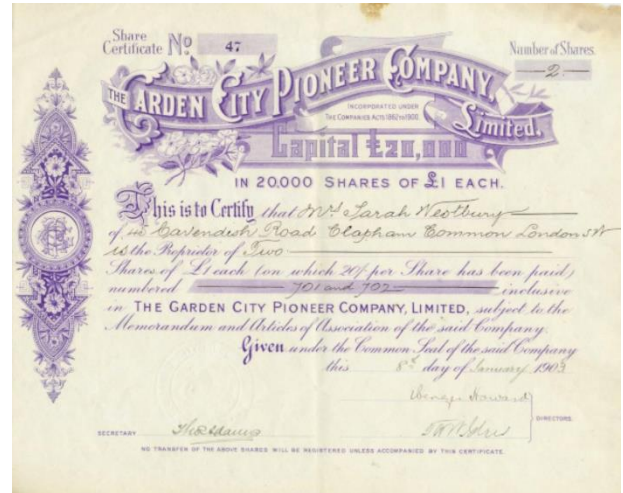 Share
Certificate No 47
Number of Shares.
2
THE GARDEN CITY PIONEER COMPANY,
Limited,
INCORPORATED UNDER
THE COMPANIES ACTS 1862 TO 1900.
Capital £20,000
IN 20,000 SHARES OF £1 EACH.
This is to Certify that Mrs Sarah Westbury
of Cavendish Road Clapham Common London SW
is the Proprietor of Two
Shares of £1 each (on which 20/- per Share has been paid)
numbered 701 and 702 inclusive
in THE GARDEN CITY PIONEER COMPANY, LIMITED, subject to the
Memorandum and Articles of Association of the said Company.
Given under the Common Seal of the said Company
this 8th day of January 1903
DIRECTORS.
SECRETARY
NO TRANSFER OF THE ABOVE SHARES WILL BE REGISTERED UNLESS ACCOMPANIED BY THIS CERTIFICATE.